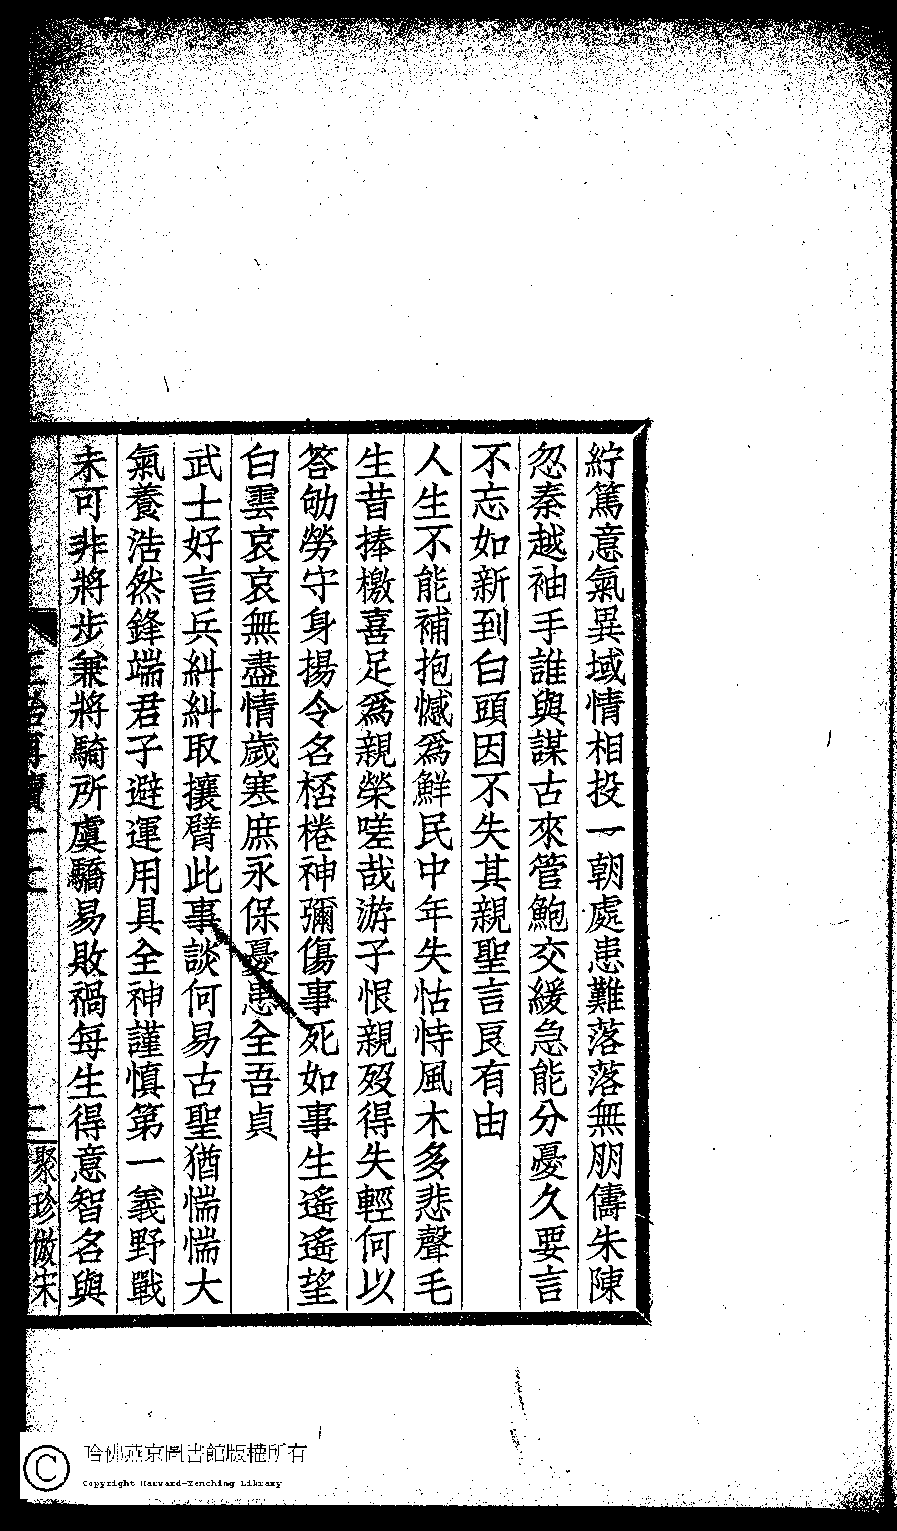 紵篤意氣異域情相投一朝處患難落落無朋儔朱陳
忽秦越袖手誰與謀古來管鮑交緩急能分憂久要言
不忘如新到白頭因不失其親聖言良有由
人生不能補抱憾爲鮮民中年失怙恃風木多悲聲毛
生昔捧檄喜足爲親榮嗟哉游子恨親歿得失輕何以
答劬勞守身揚令名桮棬神彌傷事死如事生遙遙望
白雲哀哀無盡情歲寒庶永保憂患全吾貞
武士好言兵糾糾取攘臂此事談何易古聖猶惴惴大
氣養浩然鋒端君子避運用具全神謹慎第一義野戰
未可非將步兼將騎所虞驕易敗禍每生得意智名與
聚珍倣宋
哈佛燕京圖書館版權所有
Copyright Harvard-Yenching Library